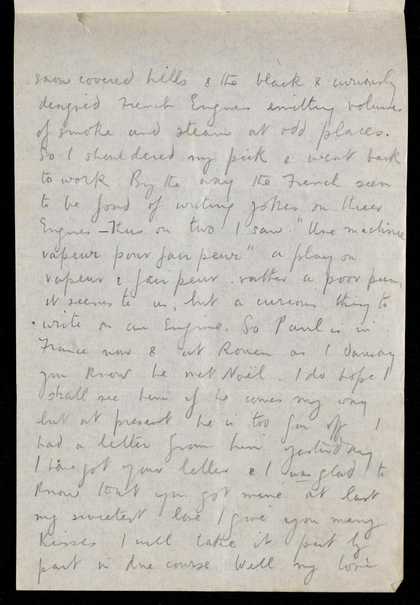 snow covered hills & the black & curiously
designed French Engines emitting volumes
of smoke and steam at odd places.
So I shouldered my pick & went back
to work By the way the French seem
to be fond of writing jokes on their
Engines – Thus on two I saw "Une machine
vapeur pour fair peur" a play on
vapeur & fair peur rather a poor pun
it seems to us, but a curious thing to
write on an Engine. So Paul is in
France now & at Rouen as I daresay
you know he met Noël. I do hope I
shall see him if he comes my way
but at present he is too far off. I
had a letter from him yesterday
I have got your letter & I was glad to
know that you got mine at last
my sweetest love I give you many
Kisses I will take it part by
part in due course Well my love